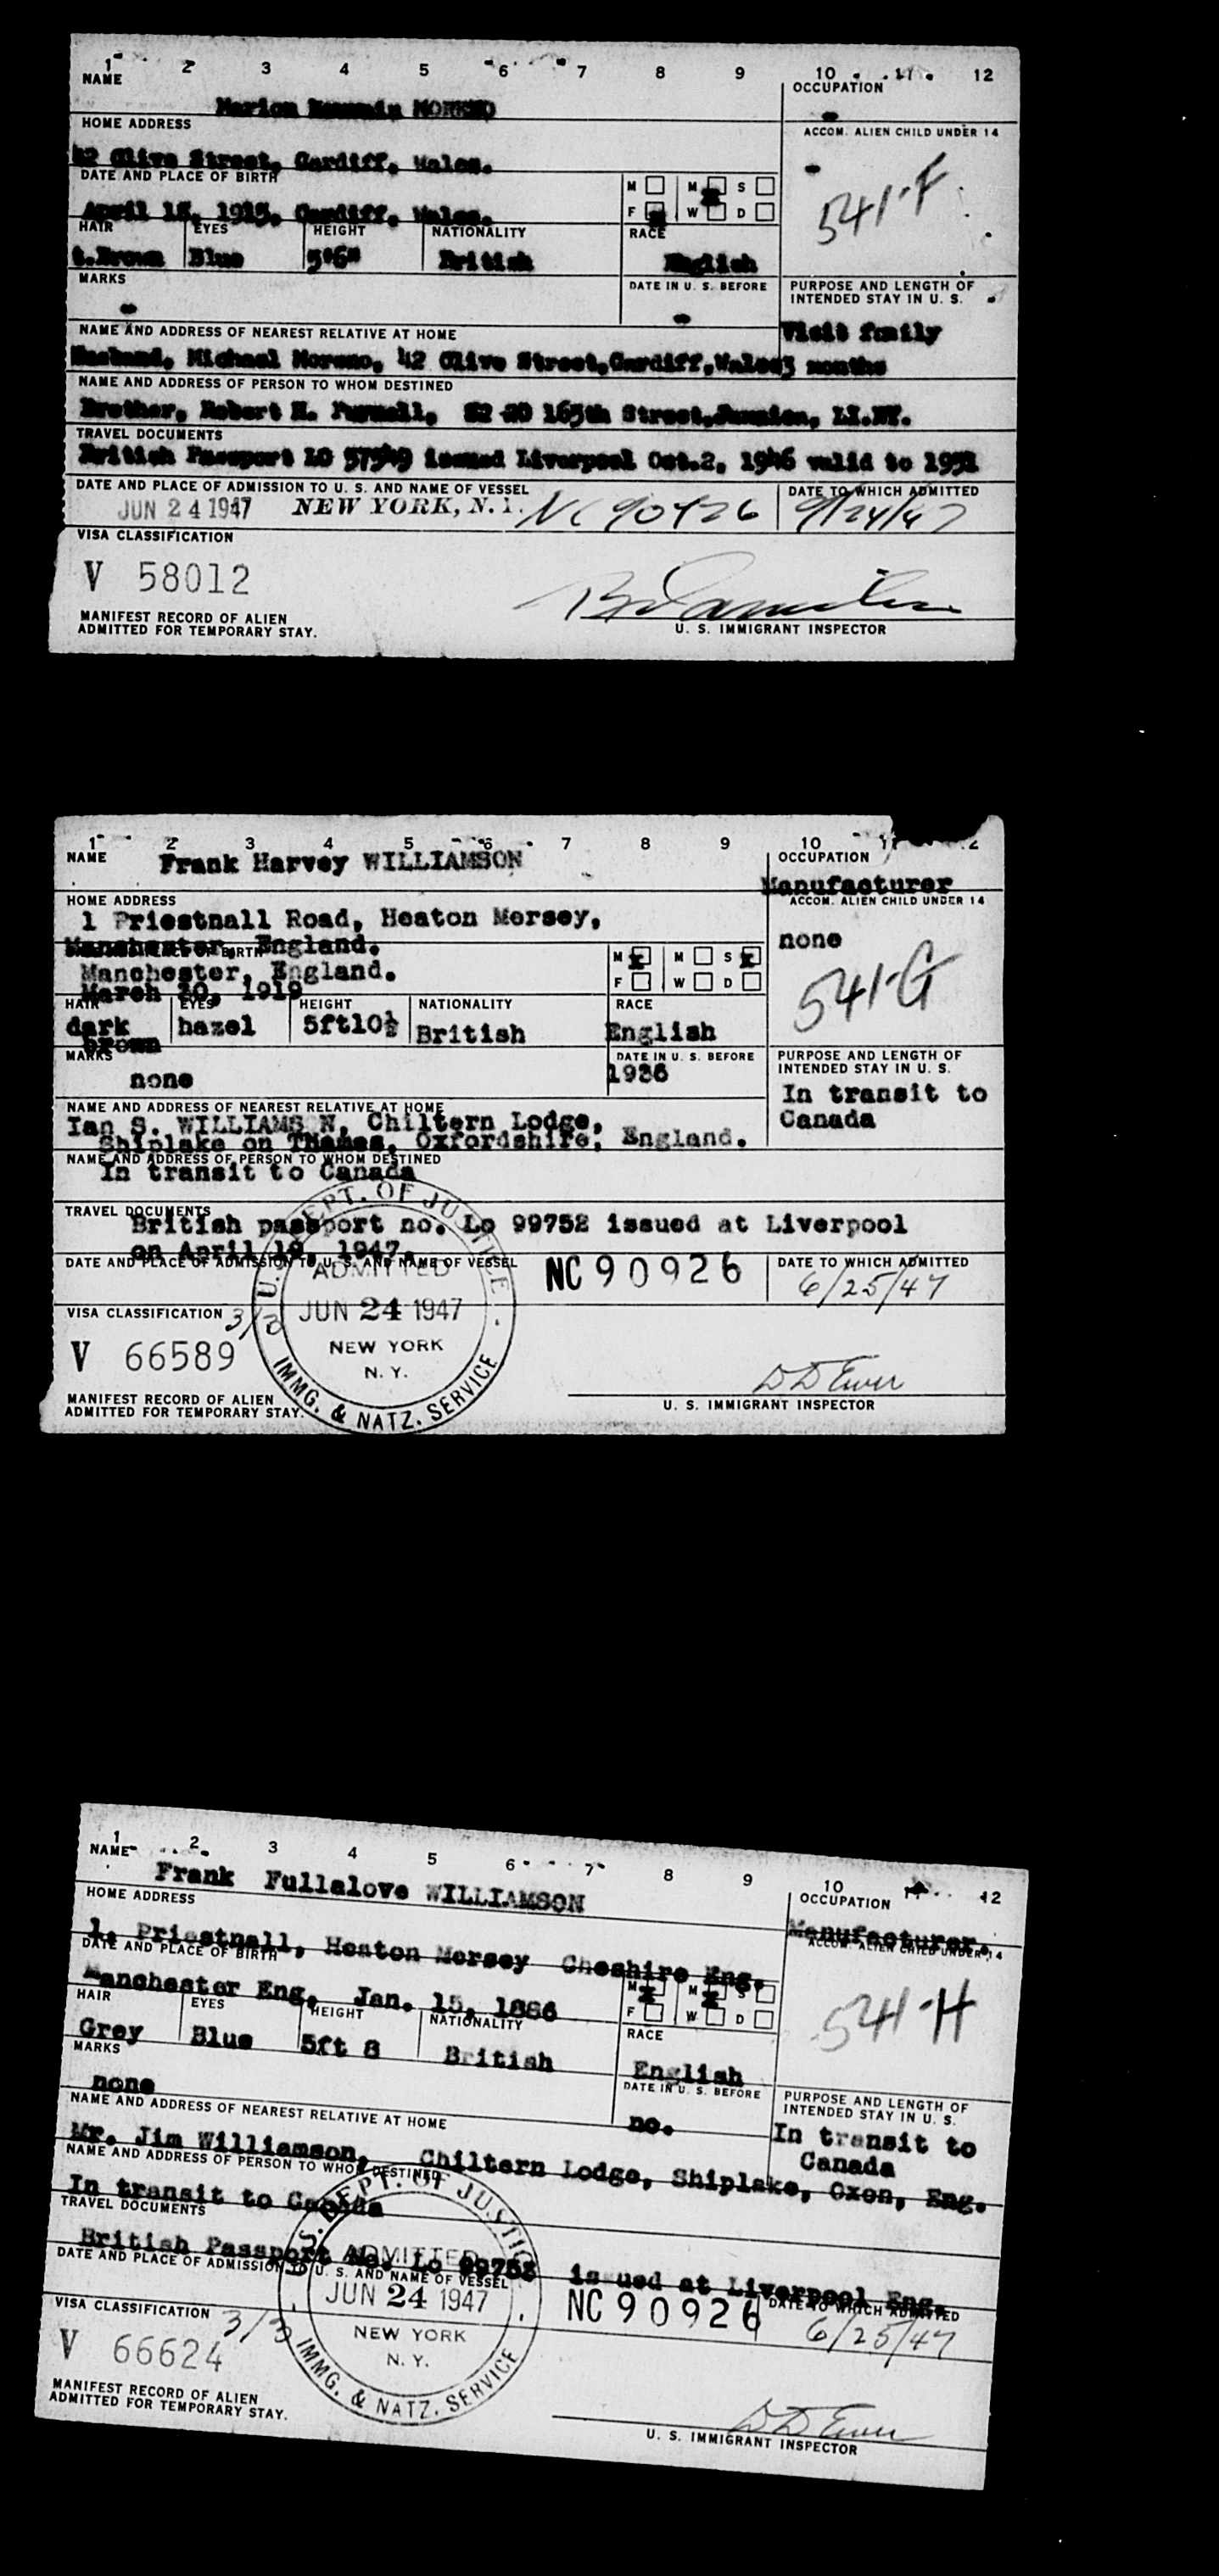 1 2 3 4 5 6 7 8 9 10 11 12
NAME
OCCUPATION
Marion MORENO
HOME ADDRESS
ACCOM. ALIEN CHILD UNDER 14
42 Clive Street, Cardiff, Wales.
541-F
DATE AND PLACE OF BIRTH
M M S
April 15, 1915, Cardiff, Wales.
F W D
HAIR EYES HEIGHT NATIONALITY RACE
t.Brown Blue 5'6" British English
MARKS
DATE IN U. S. BEFORE
PURPOSE AND LENGTH OF
INTENDED STAY IN U. S.
-
-
Visit family
NAME AND ADDRESS OF NEAREST RELATIVE AT HOME
Husband, Michael Moreno, 42 Clive Street,Cardiff,Wales 3 months
NAME AND ADDRESS OF PERSON TO WHOM DESTINED
Brother, Robert H. Purnell, 82-20 165th Street,Jamaica, LI.NY.
TRAVEL DOCUMENTS
British Passport LO 57549 issued Liverpool Oct.2, 1946 valid to 1951
DATE AND PLACE OF ADMISSION TO U. S. AND NAME OF VESSEL
DATE TO WHICH ADMITTED
JUN 24 1947 NEW YORK, N. Y. NC 90926 9/24/47
VISA CLASSIFICATION
V 58012
MANIFEST RECORD OF ALIEN
ADMITTED FOR TEMPORARY STAY.
U. S. IMMIGRANT INSPECTOR
1 2 3 4 5 6 7 8 9 10 11 2
NAME
Frank Harvey WILLIAMSON
OCCUPATION
Manufacturer
HOME ADDRESS
ACCOM. ALIEN CHILD UNDER 14
1 Priestnall Road, Heaton Mersey,
none
Manchester, England.
541-G
Manchester, England.
M M S
March 20, 1919
F W D
HAIR EYES HEIGHT NATIONALITY RACE
dark hazel 5ft10½ British English
brown
MARKS
DATE IN U. S. BEFORE
PURPOSE AND LENGTH OF
INTENDED STAY IN U. S.
none
1936
In transit to
Canada
NAME AND ADDRESS OF NEAREST RELATIVE AT HOME
Ian S. WILLIAMS N, Chiltern Lodge,
Shiplake on Thames, Oxfordshire, England.
NAME AND ADDRESS OF PERSON TO WHOM DESTINED
In transit to Canada
TRAVEL DOCUMENTS
British passport no. Lo 99752 issued at Liverpool
on April 19, 1947.
DATE AND PLACE OF ADMISSION TO U. S. AND NAME OF VESSEL
NC 90926
DATE TO WHICH ADMITTED
6/25/47
U. S. DEPT. OF JUSTICE
ADMITTED
JUN 24 1947
NEW YORK
N. Y.
IMMG. & NATZ. SERVICE
VISA CLASSIFICATION 3/3
V 66589
D D Ewer
MANIFEST RECORD OF ALIEN
ADMITTED FOR TEMPORARY STAY.
U. S. IMMIGRANT INSPECTOR
1 2 3 4 5 6 7 8 9 10 11 12
NAME
Frank Fullalove WILLIAMSON
OCCUPATION
Manufacturer.
HOME ADDRESS
ACCOM. ALIEN CHILD UNDER 14
1. Priestnall, Heaton Mersey Cheshire Eng.
DATE AND PLACE OF BIRTH
541-H
Manchester Eng, Jan. 15, 1886
M M S
F W D
HAIR EYES HEIGHT NATIONALITY RACE
Grey Blue 5ft 8 British English
MARKS
DATE IN U. S. BEFORE
PURPOSE AND LENGTH OF
INTENDED STAY IN U. S.
none
no.
In transit to
Canada
NAME AND ADDRESS OF NEAREST RELATIVE AT HOME
Mr. Jim Williamson, Chiltern Lodge, Shiplake, Oxon, Eng.
NAME AND ADDRESS OF PERSON TO WHOM DESTINED
In transit to Canada
TRAVEL DOCUMENTS
British Passport No. Lo 99753 issued at Liverpool Eng.
DATE AND PLACE OF ADMISSION TO U. S. AND NAME OF VESSEL
NC 90926
DATE TO WHICH ADMITTED
6/25/47
S. DEPT. OF JUSTIC
ADMITTED
JUN 24 1947
NEW YORK
N. Y.
IMMG. & NATZ. SERVICE
VISA CLASSIFICATION 3/3
V 66624
D D Ewer
MANIFEST RECORD OF ALIEN
ADMITTED FOR TEMPORARY STAY.
U. S. IMMIGRANT INSPECTOR